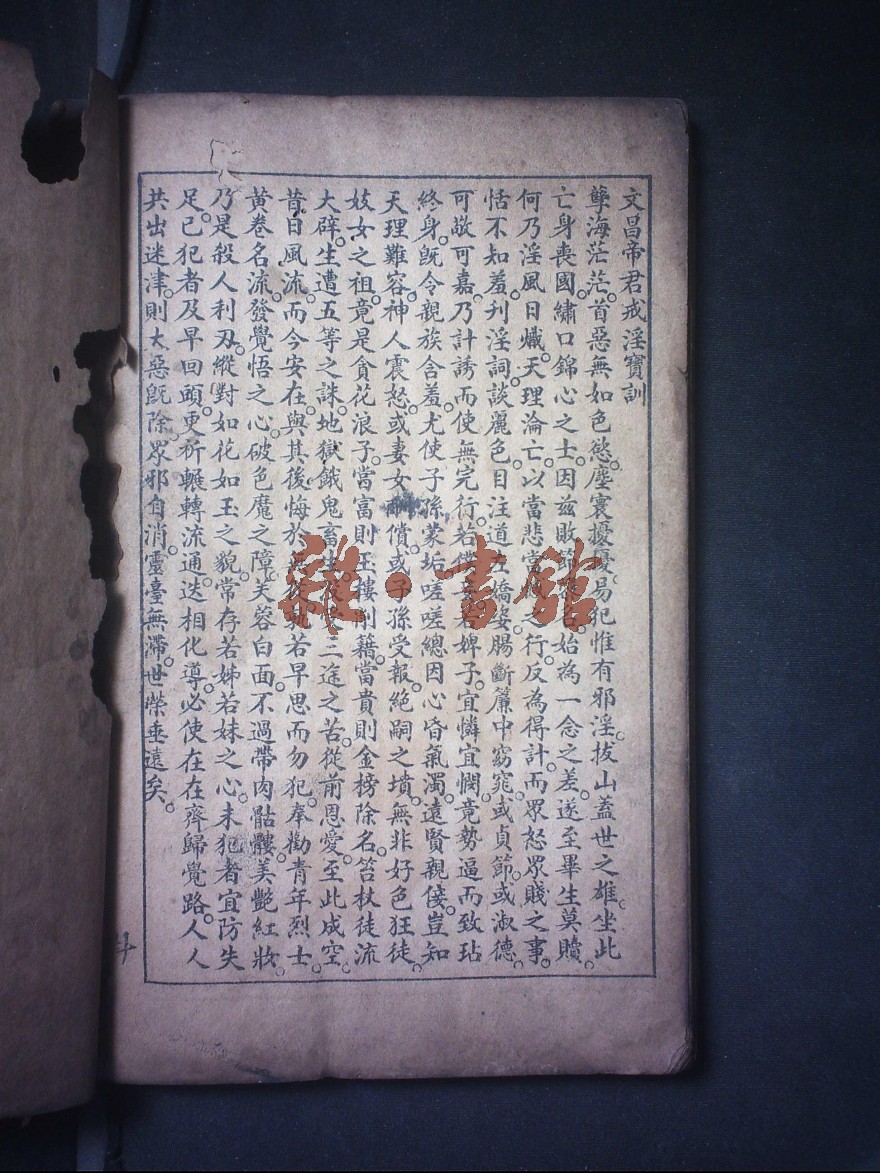 文昌帝君戒淫寶訓
孽海茫茫。首惡無如色慾。塵寰擾擾。易犯惟有邪淫。拔山蓋世之雄。坐此
亡身喪國。繡口錦心之士。因茲敗節 名。始為一念之差。遂至畢生莫贖。
何乃淫風日熾。天理淪亡。以當悲當 之行。反為得計。而眾怒眾賤之事。
恬不知羞。刋淫詞。談麗色。目注道左嬌姿。腸斷簾中窈窕。或貞節。或淑德。
可敬可嘉。乃計誘而使無完行。若 若婢子。宜憐宜憫。竟勢逼而致玷
終身。旣令親族含羞。尤使子孫蒙垢。嗟嗟總因心昏氣濁。遠賢親佞。豈知
天理難容。神人震怒。或妻女酬償。或子孫受報。絕嗣之墳。無非好色狂徒。
妓女之祖。竟是貪花浪子。當富則玉樓削籍。當貴則金榜除名。笞杖徒流
大辟。生遭五等之誅。地獄餓鬼畜生。 三途之苦。從前恩愛。至此成空。
昔日風流。而今安在。與其後悔於 若早思而勿犯。奉勸青年烈士。
黃卷名流。發覺悟之心。破色魔之障。芙蓉白面。不過帶肉骷髏。美艷紅妝。
乃是殺人利刃。縱對如花如玉之貌。常存若姊若妹之心。未犯者宜防失
足。已犯者及早回頭。更祈輾轉流通。迭相化導。必使在在齊歸覺路。人人
共出迷津。則大惡旣除。眾邪自消。靈臺無滯。世榮垂遠矣。
雜·書館